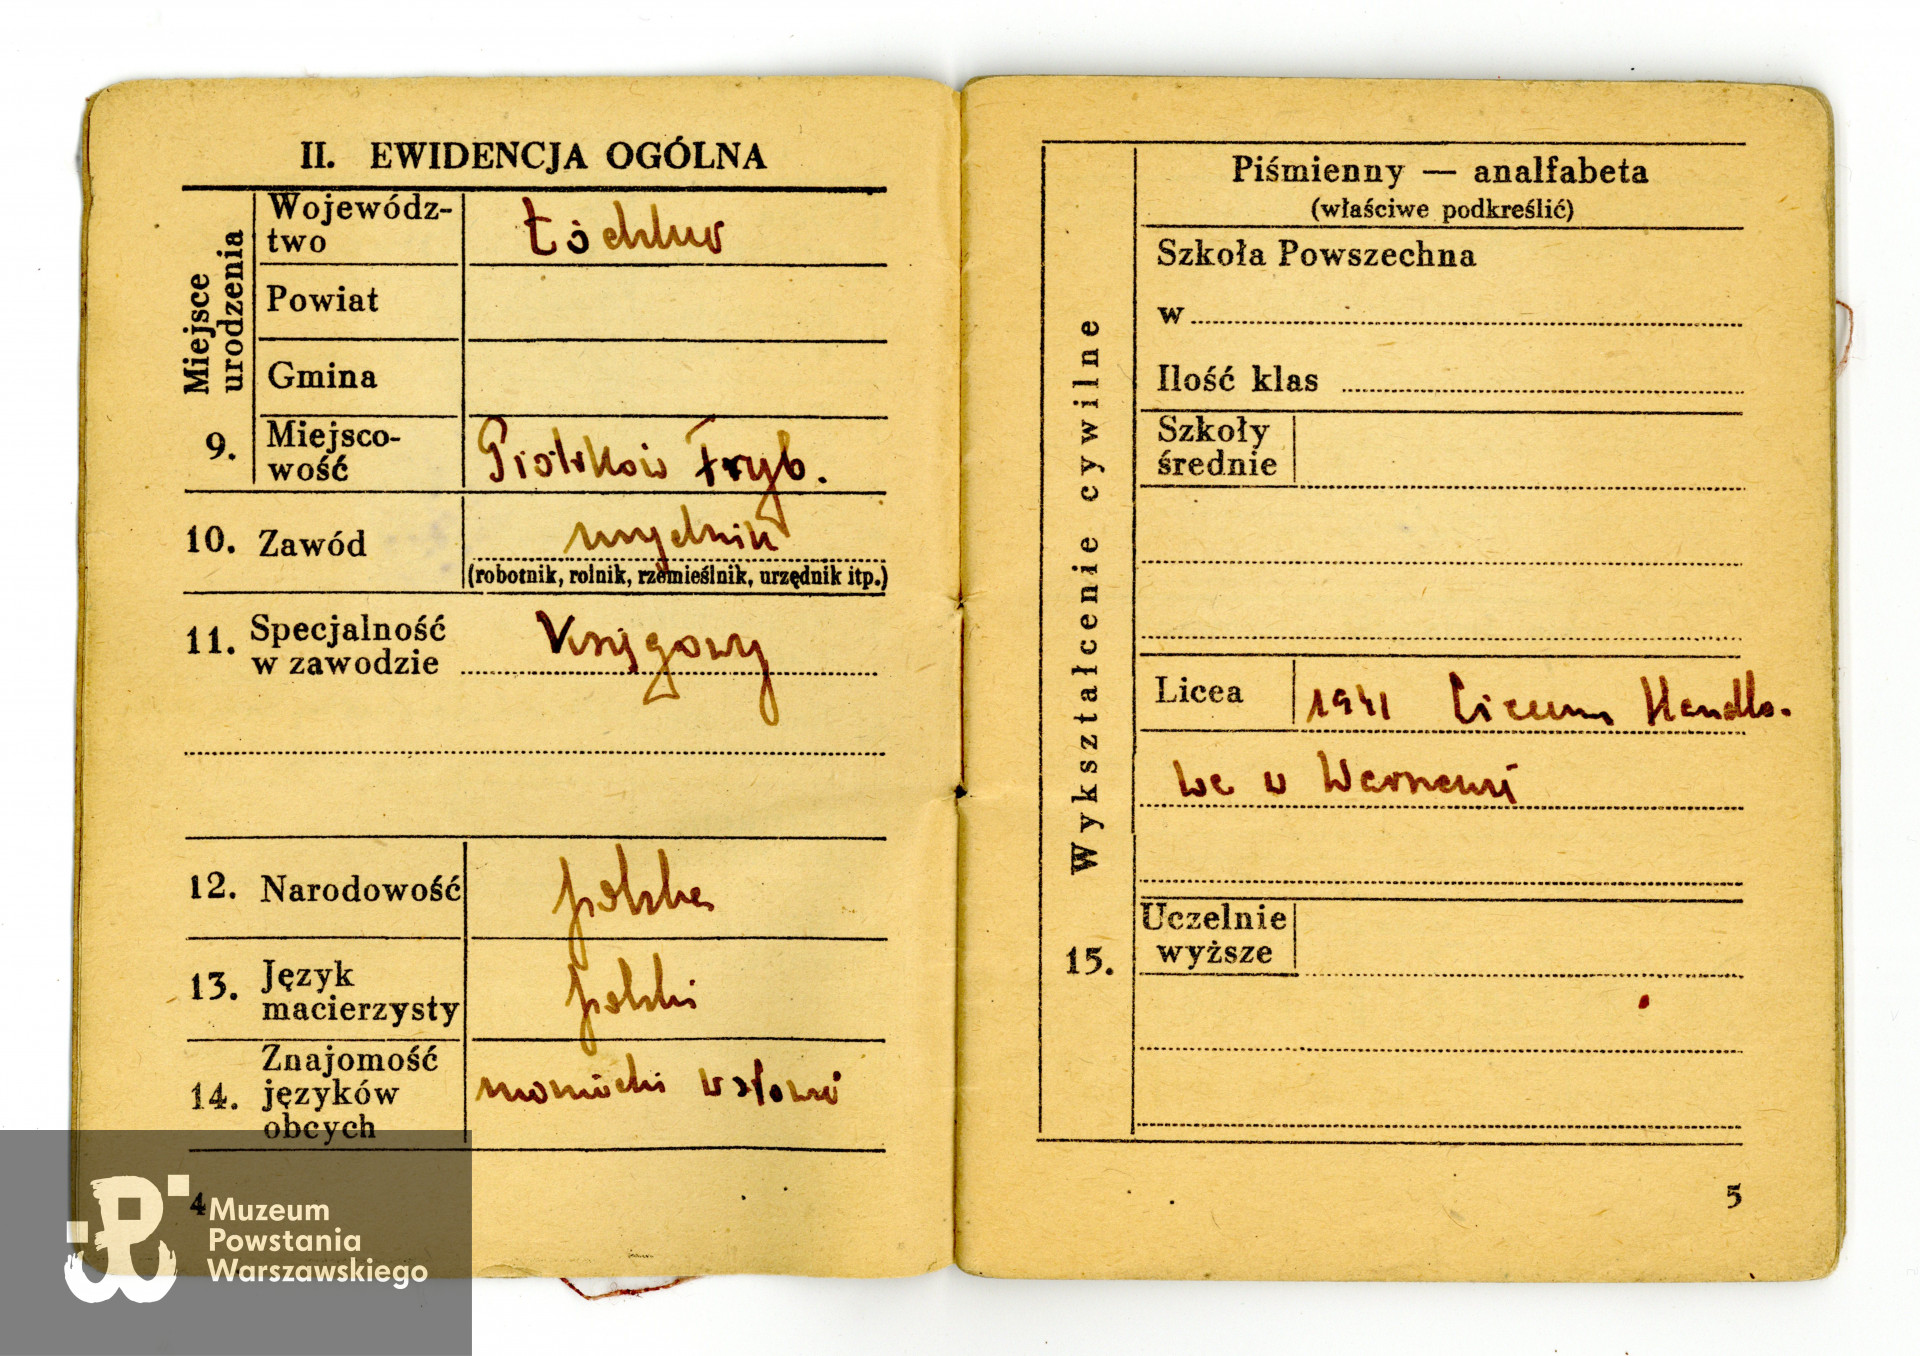 II. EWIDENCJA OGÓLNA
Miejsce
urodzenia
Wojewódz-
two
Łódzkie
Powiat
Gmina
9.
Miejsco-
wość
Piotrków Tryb.
10. Zawód
urzędnik
(robotnik, rolnik, rzemieślnik, urzędnik itp.)
11. Specjalność
w zawodzie
Księgowy
12. Narodowość
polska
13. Język
macierzysty
polski
14. Znajomość
języków
obcych
niemiecki w słowie
4
Muzeum
Powstania
Warszawskiego
Wykształcenie cywilne
15.
Piśmienny — analfabeta
(właściwe podkreślić)
Szkoła Powszechna
w
Ilość klas
Szkoły
średnie
Licea
1941 Liceum Handlo-
we w Warszawie
Uczelnie
wyższe
5